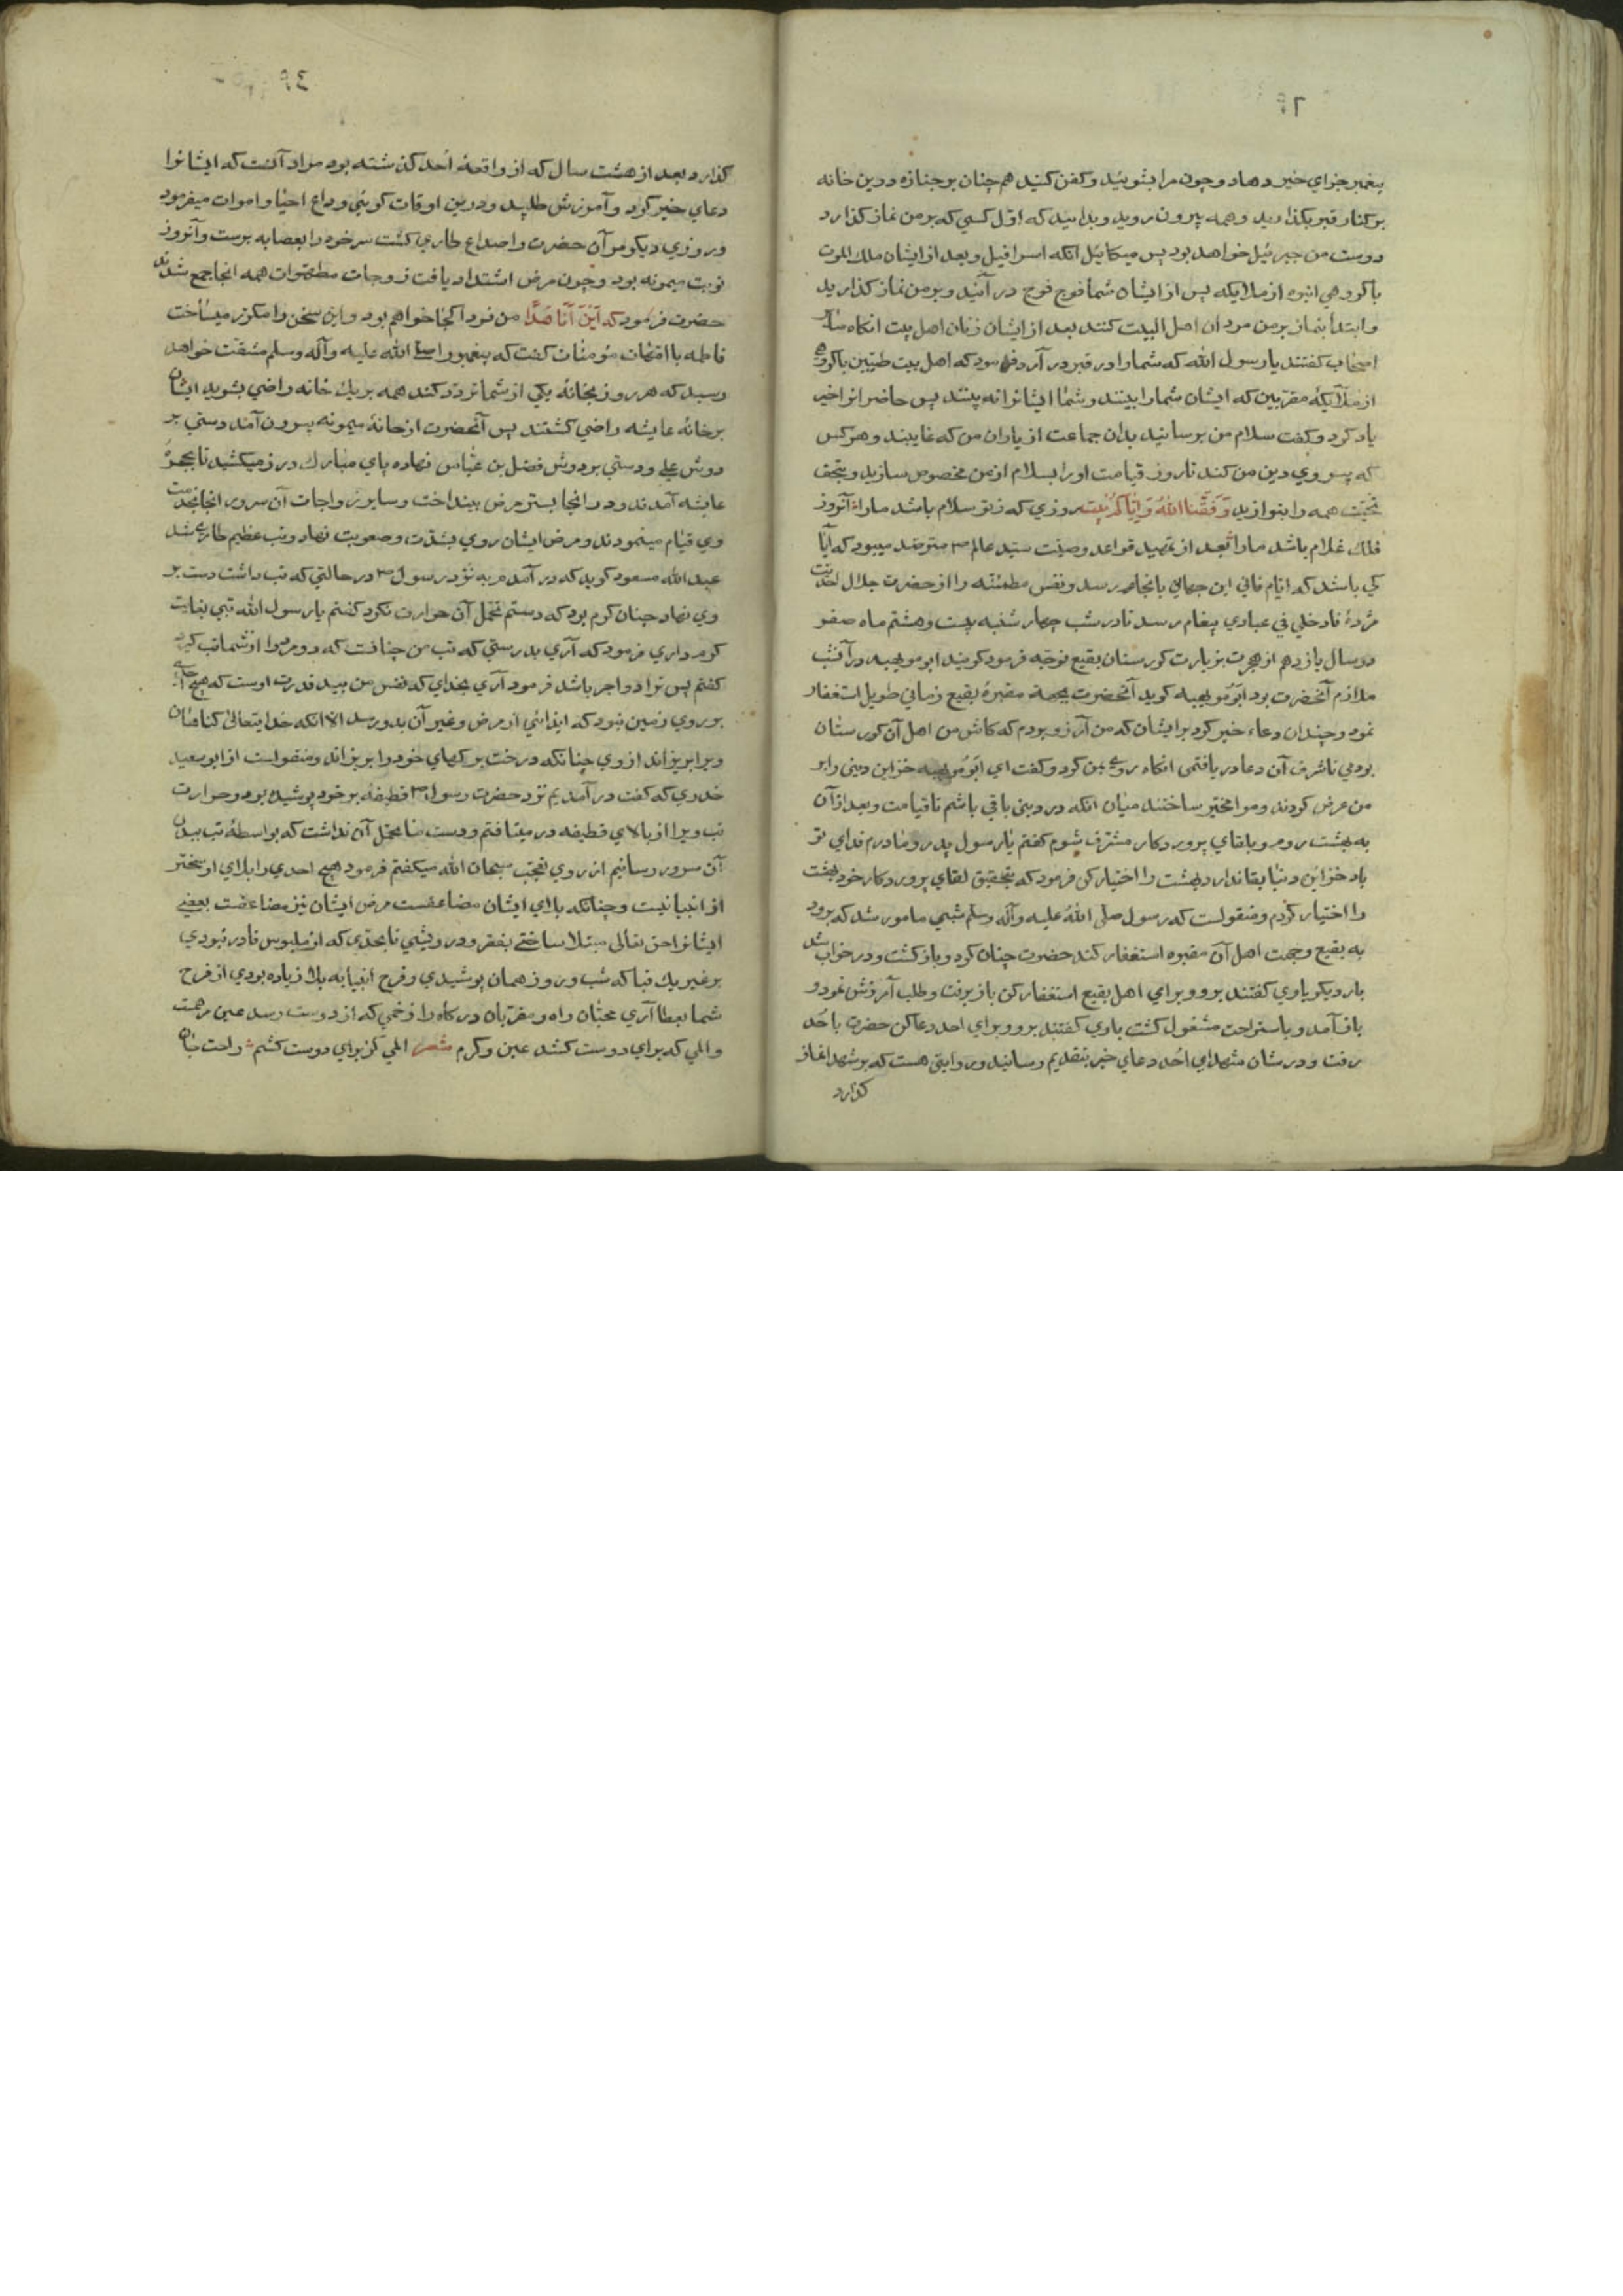 ٦٢
پیغمبر جزای خیر دهاد و چون مرا بشوئید و کفن کنید هم چنان بر جنازه درین خانه
بر کنار قبر بگذارید و همه بیرون روید و بدانید که اوّل کسی که بر من نماز گذارد
دوست من جبرئیل خواهد بود پس میکائیل انکه اسرافیل و بعد از ایشان ملک الموت
با گروهی انبوه از ملایکه پس از ایشان شما فوج فوج در آئید و بر من نماز گذارید
و ابتدا بنماز بر من مردان اهل البیت کنند بعد از ایشان زنان اهل بیت انگاه سایر
اصحاب گفتند یا رسول الله که شما را در قبر در آرد فرمود که اهل بیت طیّبین با گروهی
از ملآیکهٔ مقرّبین که ایشان شما را بینند و شما ایشانرا نه بینند پس حاضرانرا خیر
یاد کرد و گفت سلام من برسانید بدان جماعت از یاران من که غایبند و هر کس
که پیروی دین من کند تا روز قیامت او را بسلام از من مخصوص سازید و بتحف
تحیّت همه را بنوازید وَفَّقَنا اللهُ وَ اِیّاکُم بیت روزی که ز تو سلام باشد ما را آنروز
فلک غلام باشد ما را بعد از تمهید قواعد وصیّت سیّد عالم ص مترصّد میبود که آیا
کی باشد که ایام فانی این جهانی بانجام رسد و نفس مطمئنّه را از حضرت جلال احدیّت
مژدهٔ فادخلی فی عبادی پیغام رسد تا در شب چهار شنبه بیست و هشتم ماه صفر
در سال یازدهم از هجرت بزیارت گورستان بقیع توجّه فرمود گویند ابو مویهبه در آنشب
ملازم آنحضرت بود ابو مویهبه گوید آنحضرت بجهة مقبرهٔ بقیع زمانی طویل استغفار
نمود و چندان دعاء خیر کرد بر ایشان که من آرزو بردم که کاش من اهل آن گورستان
بودمی تا شرف آن دعا دریافتمی انگاه روی بمن کرد و گفت ای ابو مویهبه خزاین دنیی را بر
من عرض کردند و مرا مخیّر ساختند میان انکه در دنیی باقی باشم تا قیامت و بعد از آن
به بهشت روم و بلقای پروردگار مشرّف شوم گفتم یا رسول پدر و مادرم فدای تو
باد خزاین دنیا بقا ندارد بهشت را اختیار کن فرمود که بتحقیق لقای پروردگار خود بهشت
را اختیار کردم و منقولست که رسول صلّی اللهُ علیه و آله وسلّم شبی مامور شد که برود
به بقیع و جهت اهل آن مقبره استغفار کند حضرت چنان کرد و باز گشت و در خواب شد
بار دیگر باوی گفتند برو و برای اهل بقیع استغفار کن باز برفت و طلب آمرزش نمود و
باز آمد و باستراحت مشغول گشت باوی گفتند برو و برای احد دعا کن حضرت باحُد
رفت و در شان شهدای اُحد دعای خیر بتقدیم رسانید و روایتی هست که بر شهدا نماز
گذارد
گذارد بعد از هشت سال که از واقعهٔ اُحد گذشته بود مراد آنست که ایشانرا
دعای خیر کرد و آمرزش طلبید و درین اوقات گوئیی وداع احیا و اموات میفرمود
و روزی دیگر مر آن حضرت را صداع طاری گشت سر خود را بعصابه بربست و آنروز
نوبت میمونه بود و چون مرض اشتداد یافت زوجات مطهّرات همه انجا جمع شدند
حضرت فرمود که اَیْنَ اَنَا غَدًا من فردا کجا خواهم بود و این سخن را مکرّر میساخت
فاطمه با امّهات مؤمنات گفت که پیغمبر را صلی الله علیه و آله وسلم مشقّت خواهد
رسید که هر روز بخانهٔ یکی از شما تردّد کند همه بر یک خانه راضی بشوید ایشان
بر خانهٔ عایشه راضی گشتند پس آنحضرت از خانهٔ میمونه بیرون آمد دستی بر
دوش علی و دستی بر دوش فضل بن عبّاس نهاده پای مبارک در زمین میکشید تا بحجرهٔ
عایشه آمدند و در انجا بستر مرض بینداخت و سایر زواجات آن سرور انجا بخدمت
وی قیام مینمودند و مرض ایشان روی بشدّت و صعوبت نهاد و تب عظیم طاری شد
عبد الله مسعود گوید که در آمدم به نزد رسول ص در حالتی که تب داشت دست بر
وی نهادم چنان گرم بود که دستم تحمّل آن حرارت نکرد گفتم یا رسول الله تبی بغایت
گرم داری فرمود که آری بدرستی که تب من چنانست که دو مرد را از شما تب گیرد
گفتم پس ترا دو اجر باشد فرمود آری بخدای که نفس من بید قدرت اوست که هیچ احدی
بر روی زمین نبود که ایذائی از مرض و غیر آن بدو رسد الا انکه خدایتعالی گناهان
ویرا بریزاند از وی چنانکه درخت برگهای خود را بریزاند و منقولست از ابو سعید
خدری که گفت در آمدیم نزد حضرت رسول ص قطیفهٔ بر خود پوشیده بود و حرارت
تب ویرا از بالای قطیفه در میافتم و دست ما تحمّل آن نداشت که بواسطهٔ تب ببدن
آن سرور رسانیم از روی تعجّب سبحان الله میگفتم فرمود هیچ احدی را بلای او سختر
از انبیا نیست و چنانکه بلای ایشان مضاعفست مرض ایشان نیز مضاعفست بعضی
ایشانرا حق تعالی مبتلا ساختی بفقر و درویشی تا بحدّی که از ملبوس قادر نبودی
بر غیر یک قبا که شب و روز همان پوشیدی و فرح انبیا به بلا زیاده بودی از فرح
شما بعطا آری محبّان راه و مقرّبان درگاه را زخمی که از دوست رسد عین مرهمست
و المی که برای دوست کشند عین و کرم شعر المی کز برای دوست کشم راحت جان